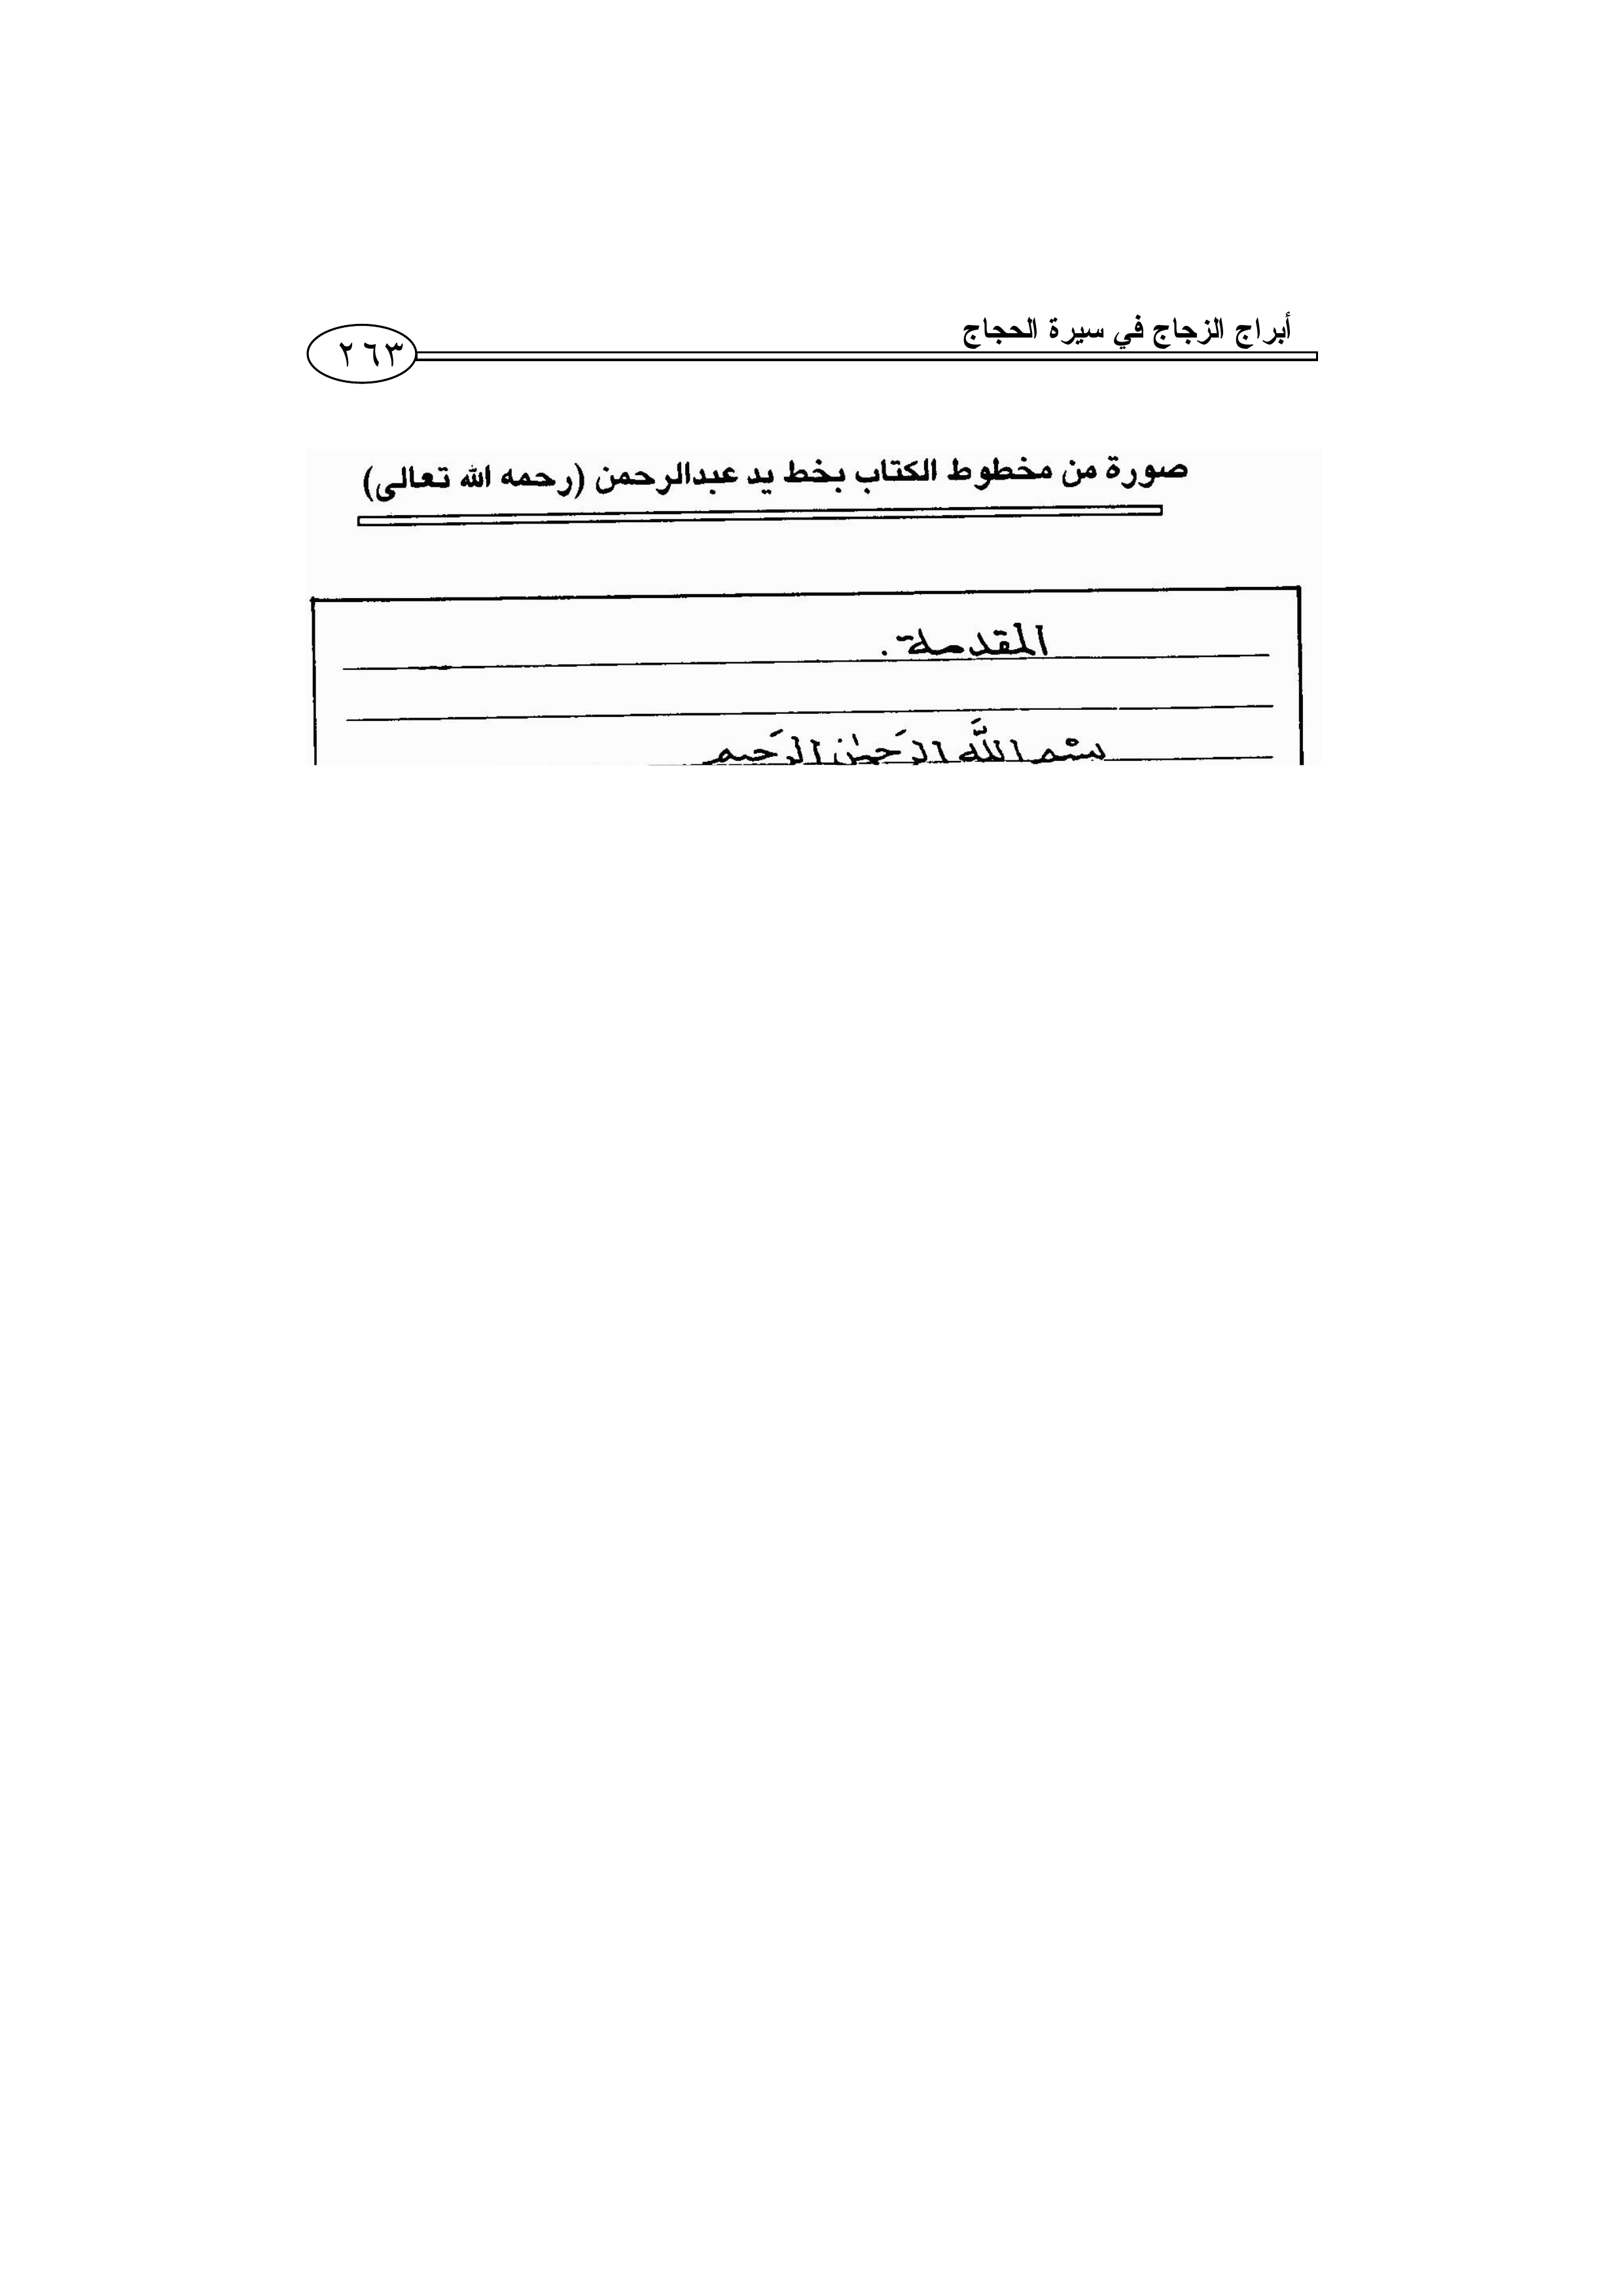 أبراج الزجاج في سيرة الحجاج
٢٦٣
صورة من مخطوط الكتاب بخط يد عبدالرحمن (رحمه الله تعالى)
المقدمة.
بسْم اللَّه الرَحمٰن الرَحيم